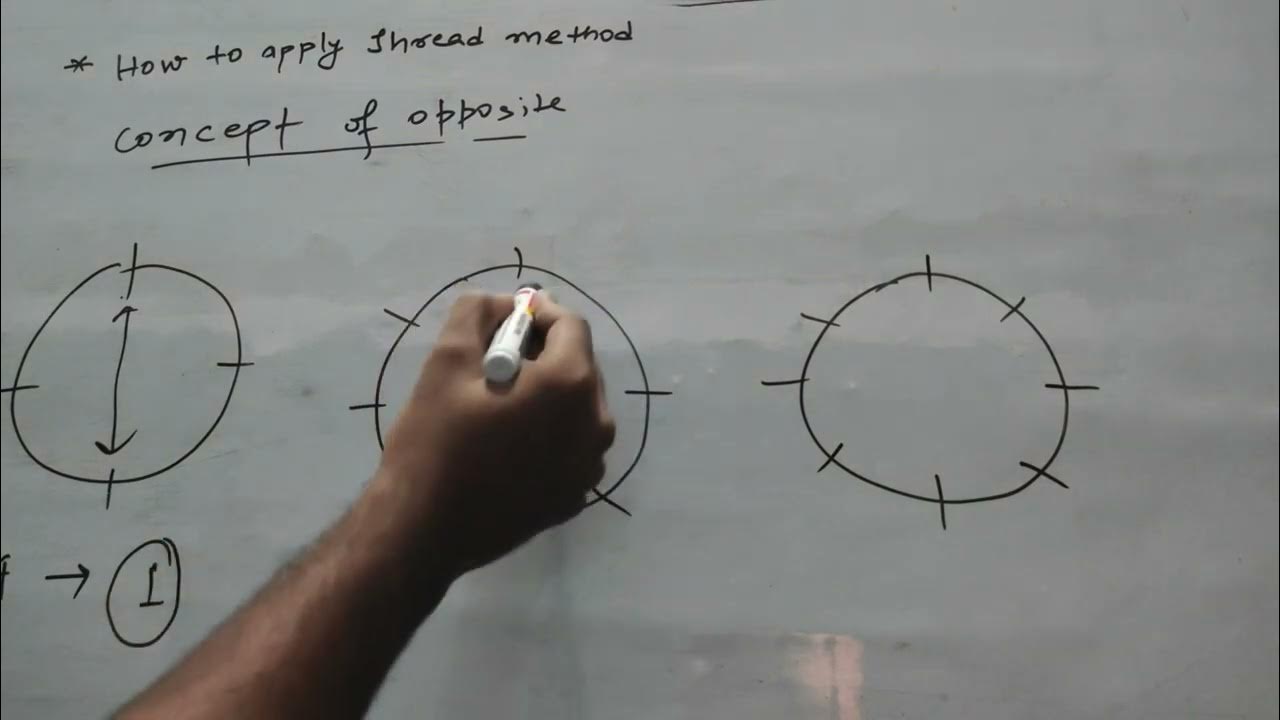 * How to apply Thread method
concept of opposite
→ 1